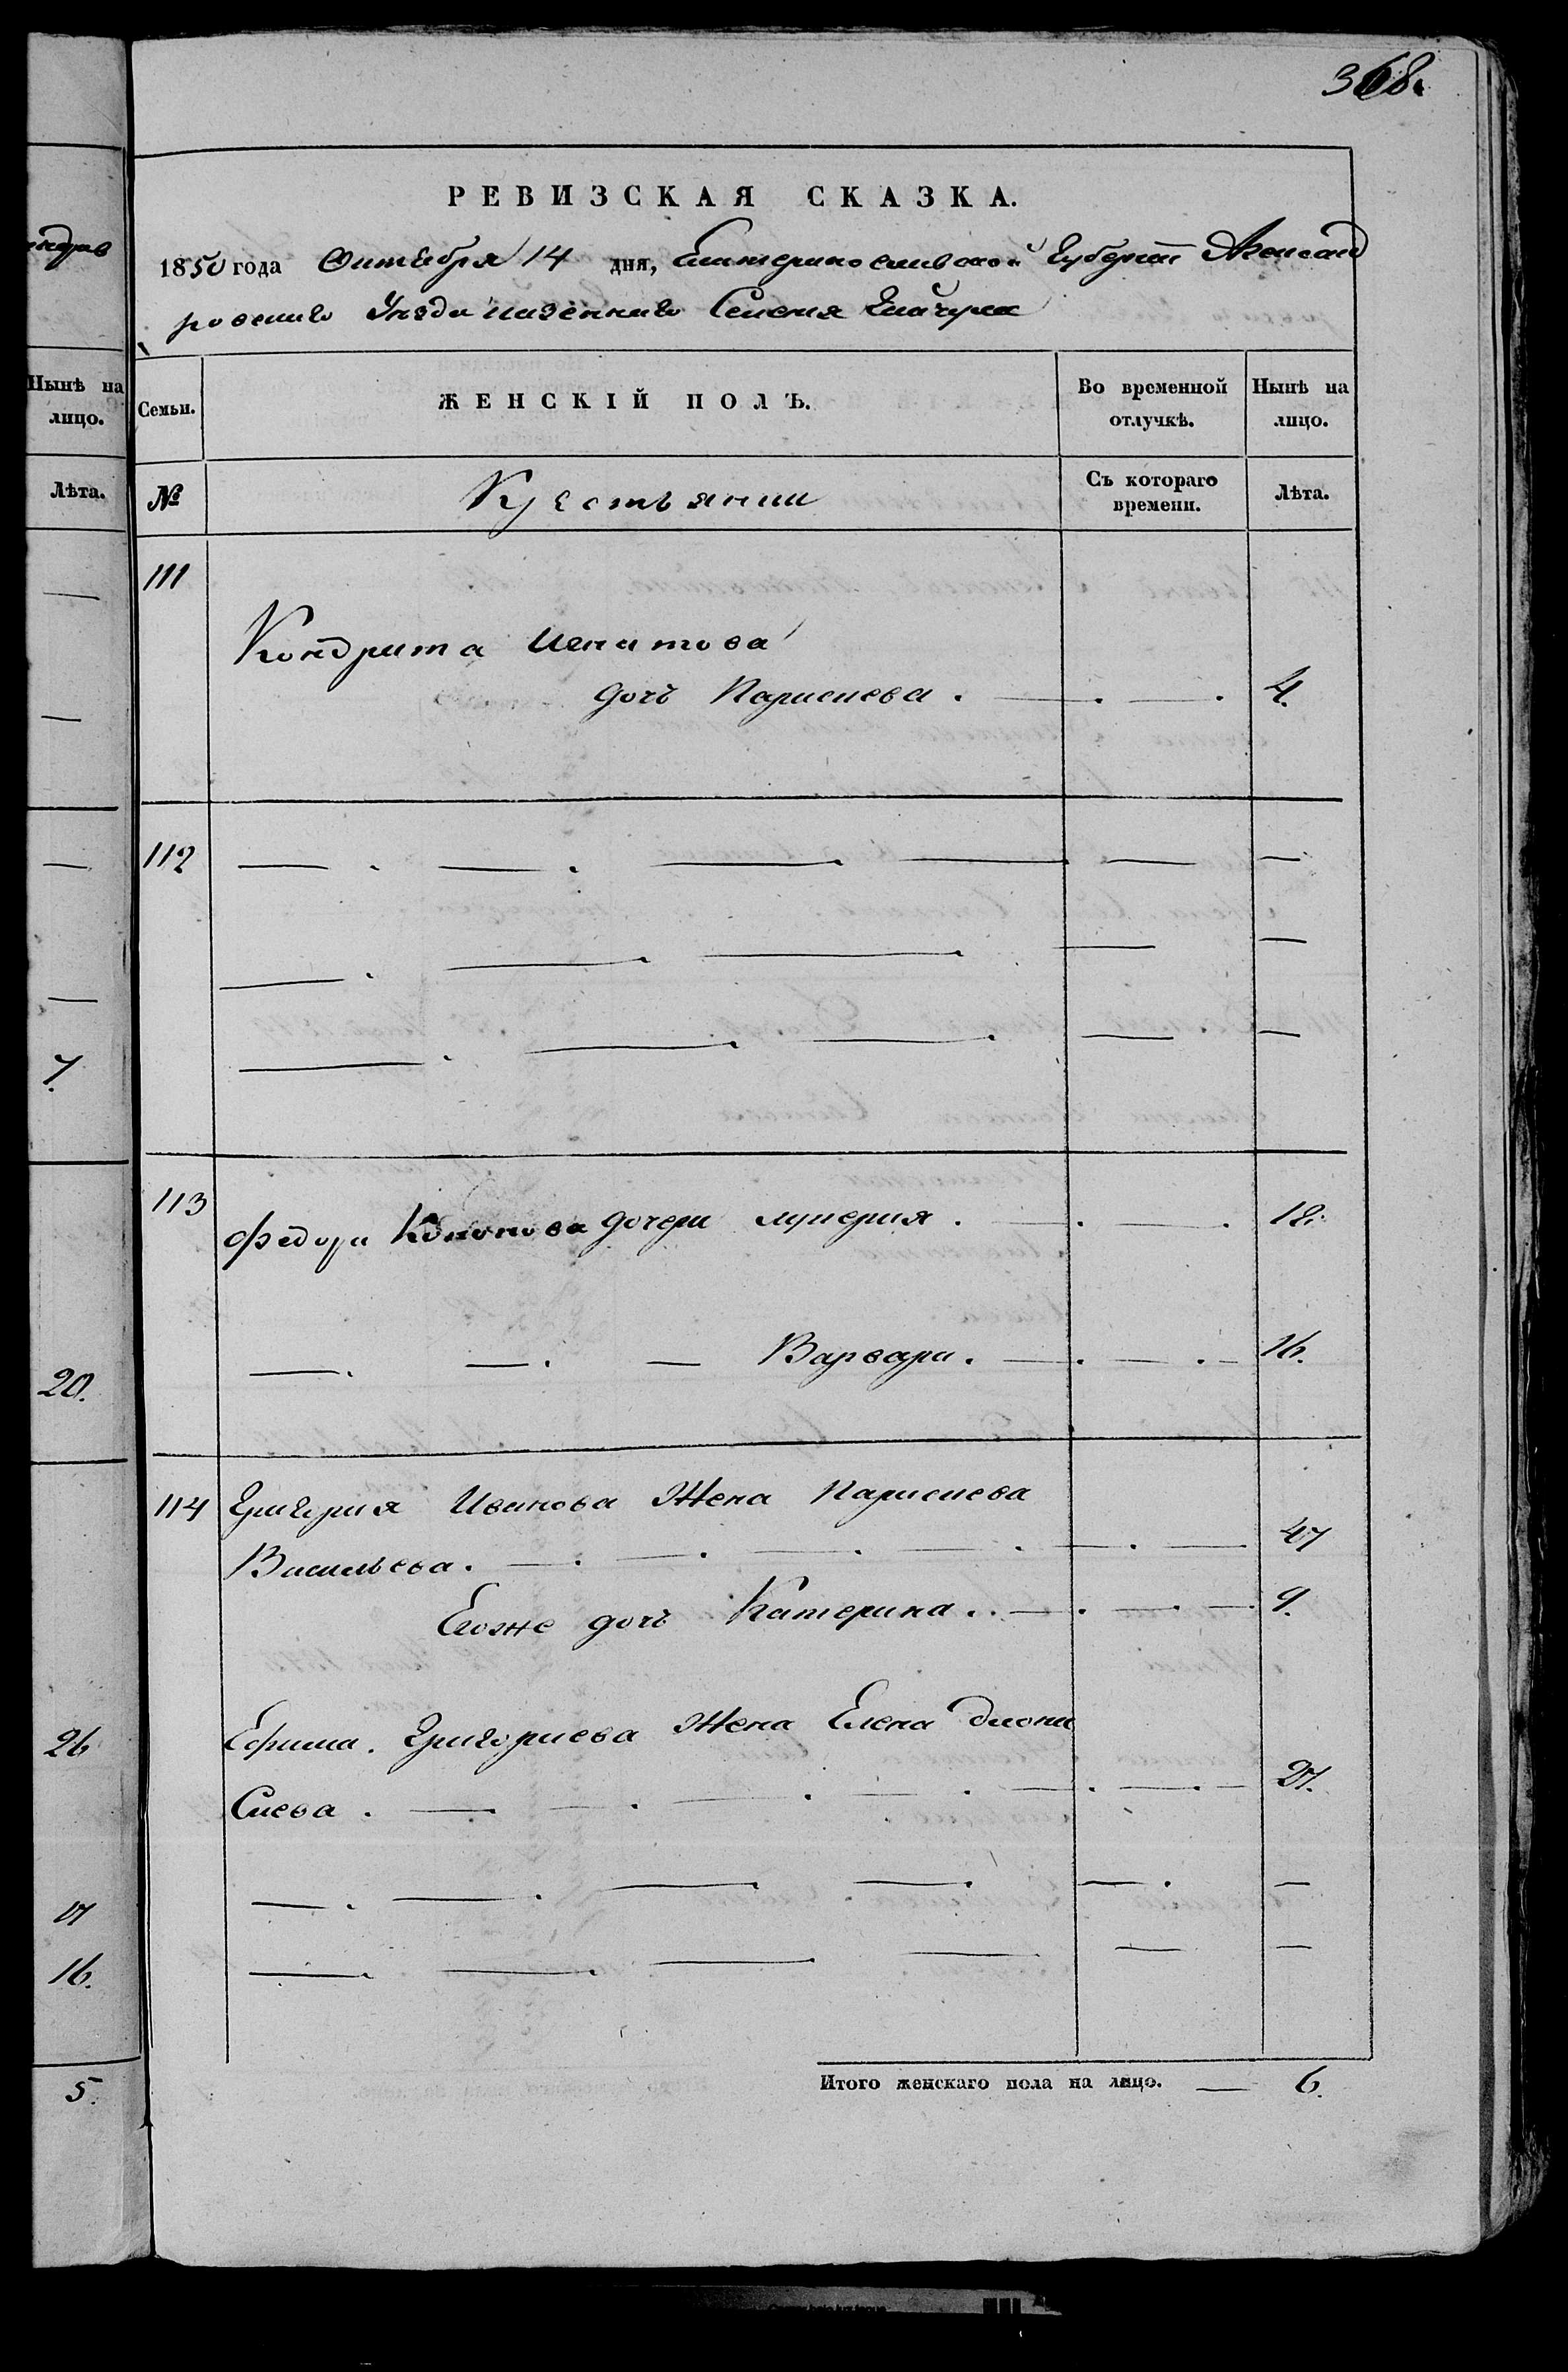 368.
РЕВИЗСКАЯ СКАЗКА.
1850 года Октября 14 дня, Екатеринославской Губернии Александ
ровскаго Уезда казеннаго Селения
Нынѣ на лицо.
Семьи.
ЖЕНСКІЙ ПОЛЪ.
Во временной отлучкѣ.
Нынѣ на лицо.
Лѣта.
№
Крестьянки
Съ котораго времени.
Лѣта.
111
Кондрата Игнатова
дочъ Параскева. — . — . 4.
112 — . — . — . — — —
— . — . — . — —
— . — . — . — —
7.
113 Федора Кононова дочери Лукерия . — . — . 18.
— . — . — Варвара. — . — . — 16.
20.
114 Григория Иванова Жена Параскева
Васильева. — . — . — . — . — . — 47
Егоже дочъ Катерина. . — . — . — 9.
Ефима. Григориева Жена Елена Диони
26
Сиева . — . — . — . — . — . — . — 27.
— . — . — . — . — . —
17
— . — . — . — — —
16.
Итого женскаго пола на лицо. — 6.
5.